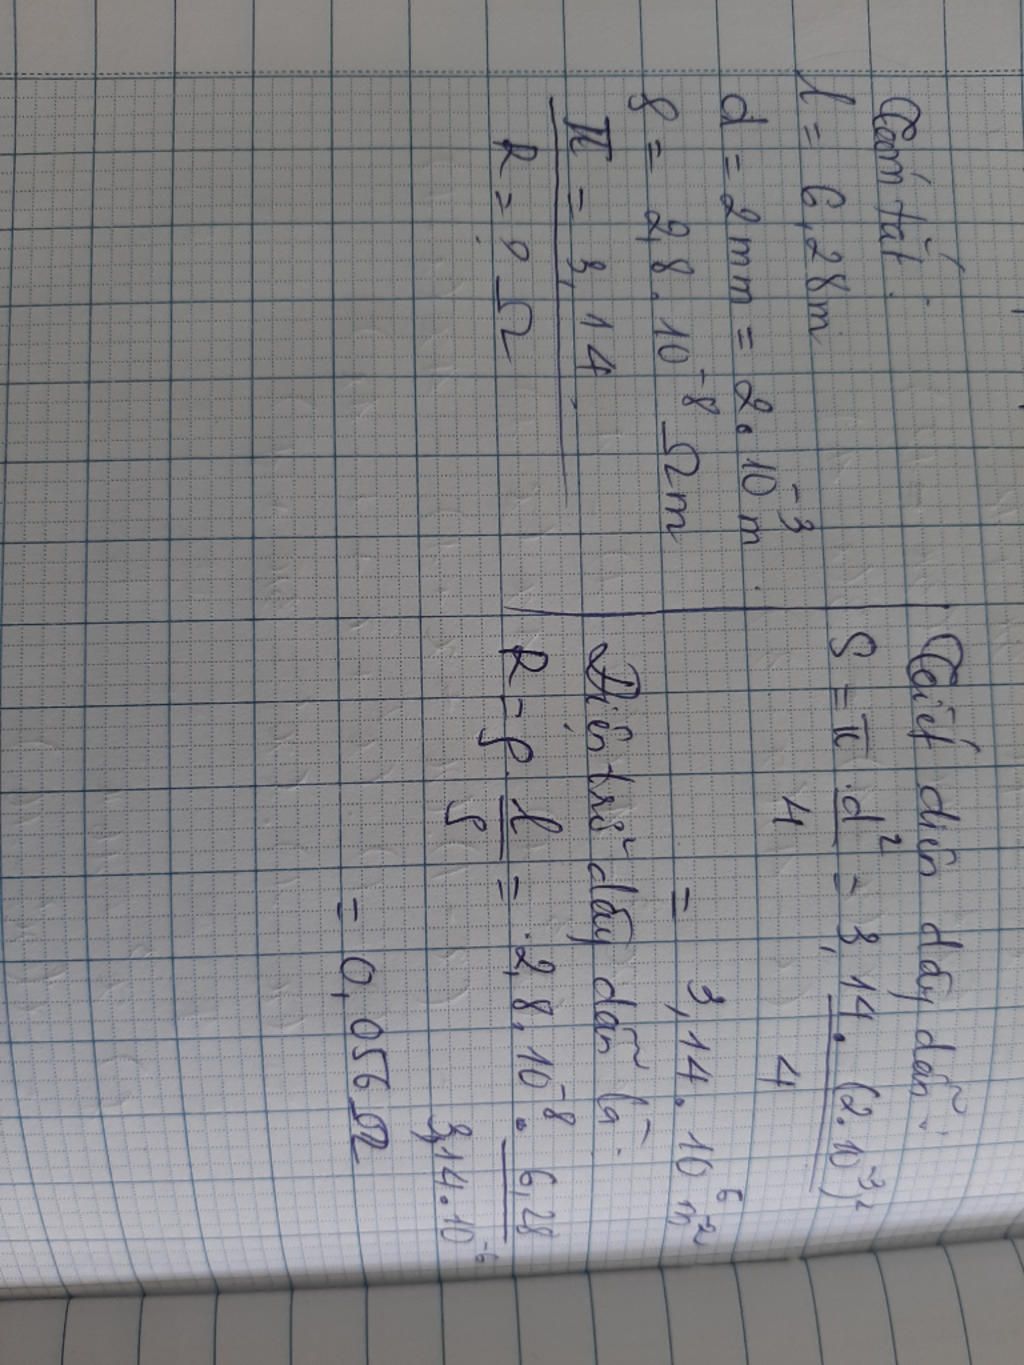 Tóm tắt:
l = 6,28m
d = 2mm = 2.10⁻³ m.
ρ = 2,8.10⁻⁸ Ωm
π = 3,14.
R = ? Ω
Tiết diện dây dẫn:
S = π.d²/4 = 3,14.(2.10⁻³)²/4
= 3,14.10⁻⁶ m²
Điện trở dây dẫn là:
R = ρ.l/S = 2,8.10⁻⁸.6,28/3,14.10⁻⁶
= 0,056 Ω